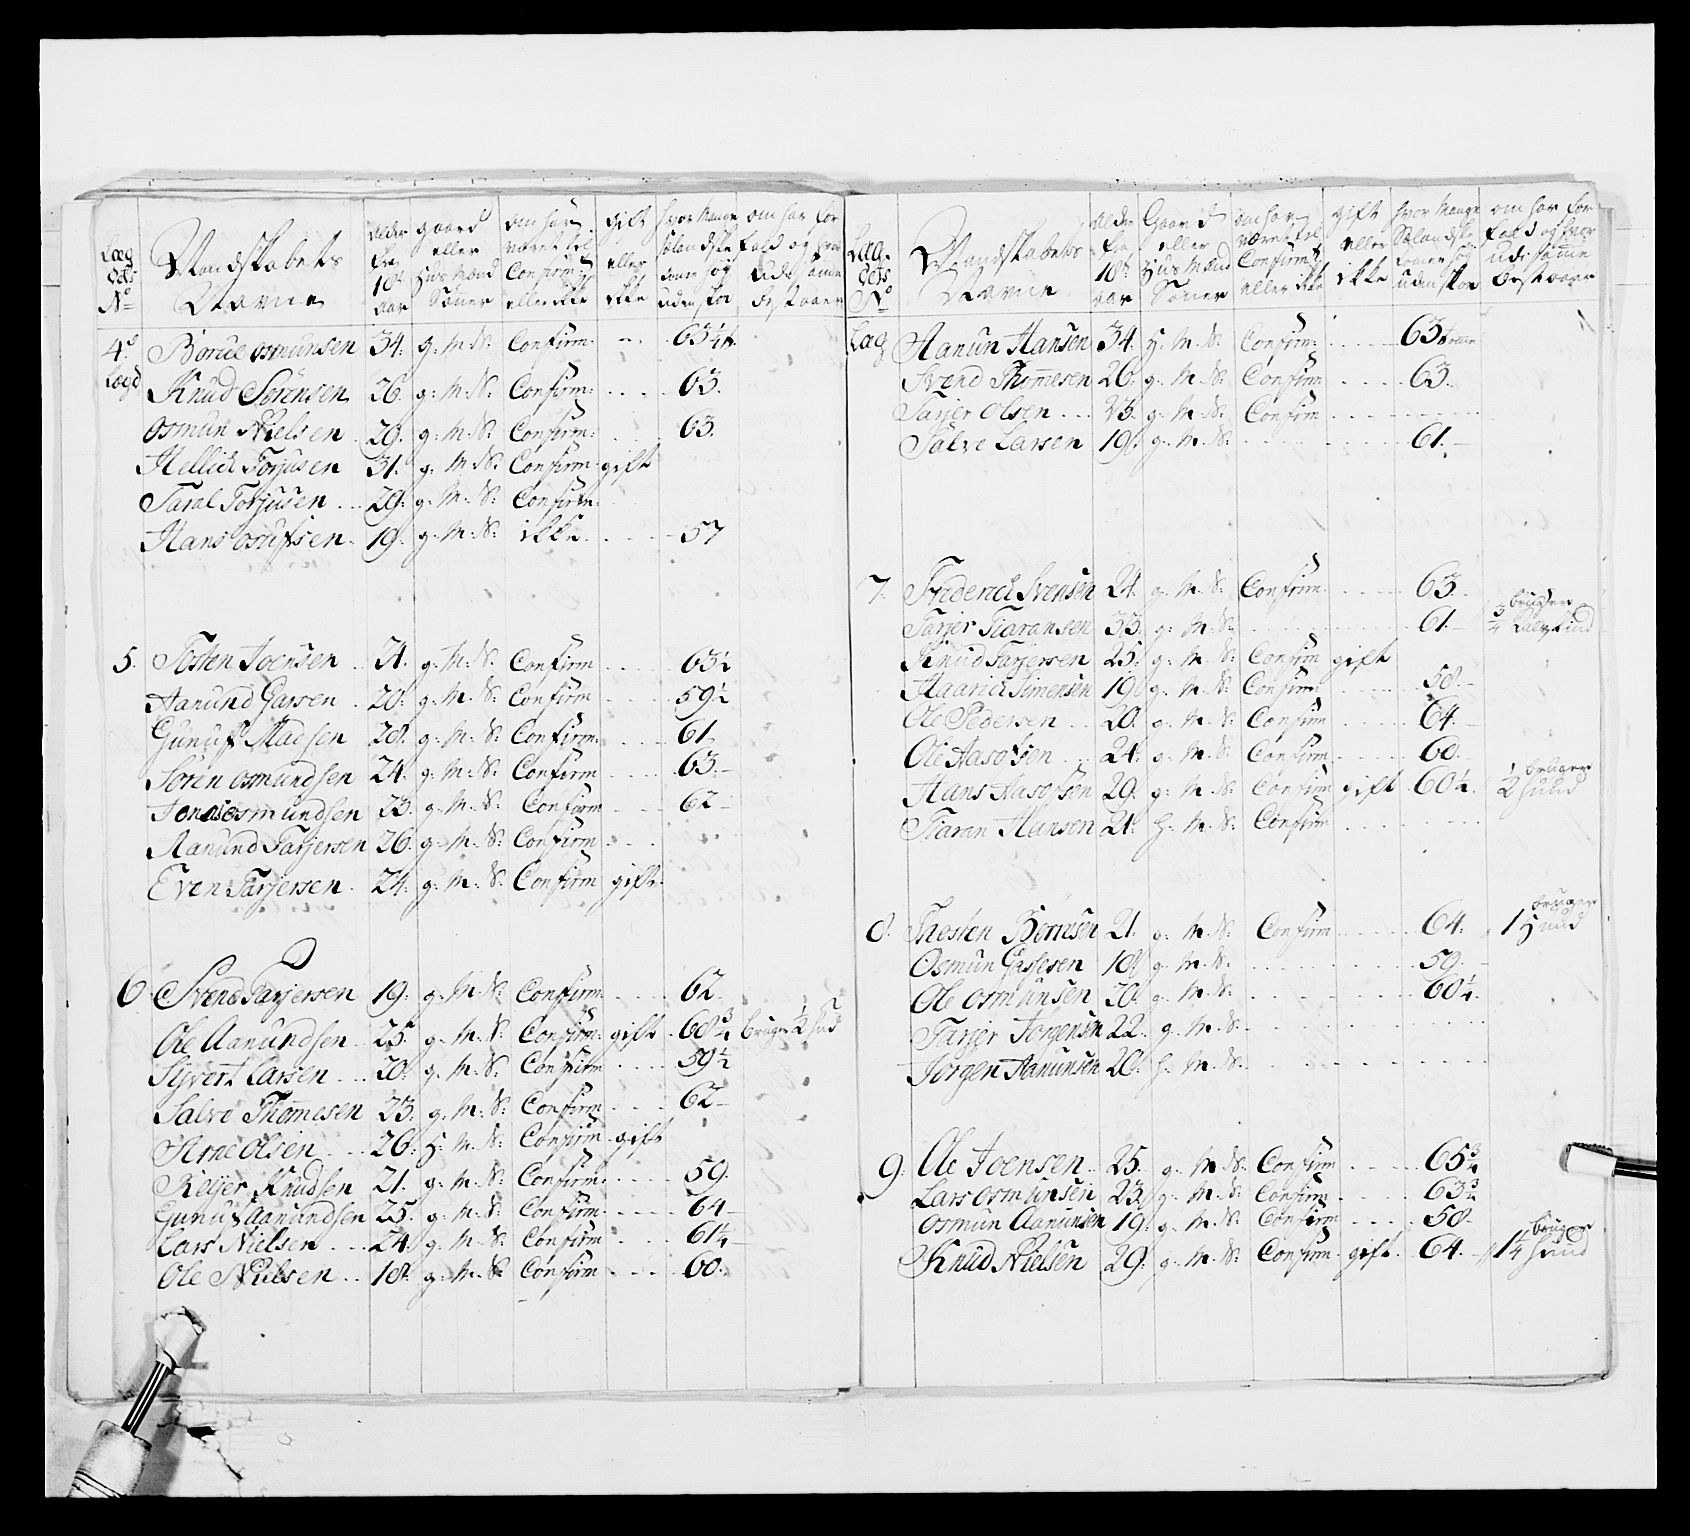 Læg
dets
No
Mandskabets
Navne
Alder
fra
18
aar
gaard
eller
Huusmænd
Sønner
om har
været til
Confirm
eller ikke
gift
eller
ikke
hvor mange
Sælandske
tommer høy
uden skoe
om har for
fald og hvor
udi samme
bestaaer
4de Børue osmunsen 34. g. M. S. Confirm. 63 1/4 t.
Lægd Knud Sørensen 26. g: M: S: Confirm: 63.
Osmun Nielsen 29. g: M. S: Confirm: 63.
Hellich Torjusen 31. g. M S: Confirm gift
Taral Torjusen 29: g. M. S: Confirm
Hans osufsen 19. g: M: S: ikke 57
5. Tosten Joensen 21. g. M. S. Confirm 63 1/2
Aanund Garsen 20. g. M. S: Confirm 59 1/2
Gunuf Madsen 28. g. M. S: Confirm. 61
Sören osmundsen 24. g: M. S: Confirm 63.
osmundsen 23. g. M. S: Confirm 62
Aanund Tarjersen 26. g. M. S: Confirm
Even Tarjersen 24. g. M. S: Confirm gift.
6 Svend Tarjersen 19. g. M. S: Confirm 62
Ole Aanundsen 25. g. M. S: Confirm gift 60 3/4 bruger 1/2 hud
Sijvert Larsen 20. g. M. S: Confirm 59 1/2
Salve Thomesen 23. g. M: S: Confirm 62
Arne Olsen 26. H. M. S: Confirm gift
Reijer Knudsen 21. g. M. S: Confirm 59.
Gunuf Aanundsen 25. g. M. S: Confirm. 64
Lars Nielsen 24. g. M. S: Confirm 61 1/4
Ole Nielsen 18. g. M. S: Confirm 60.
Læg
dets
No
Mandskabets
Navne
Alder
fra
18
aar
Gaard
eller
Huusmænd
Sønner
om har
været til
Confirm
eller ikke
gift
eller
ikke
hvor mange
Sælandske
tommer høy
uden skoe
om har for
fald og hvor
udi samme
bestaaer
Læg Aanun Hansen 34. H. M. S: Confirm: 63 tom
Svend Thomesen 26. g. M. S: Confirm 63.
Tarjer Olsen 23. g. M. S: Confirm
Salve Larsen 19. g. M. S: 61.
7. Friderich Svensen 24. g. M. S: Confirm 63.
Tarjer Tiaransen 33. g: M. S: 61. bruger 3/4
Knud Tarjersen 25. g. M. S: Confirm gift
Aaarich Simensen 19 g. M. S: Confirm 58.
Ole Pedersen 20. g. M. S: Confirm 64.
Ole Aasofsen 24. g. M. S: Confirm 60.
Hans Aasofsen 29. g: M. S: Confirm gift 60 1/2 bruger 1/2 huud
Tiaran Hansen 21. H. M. S: Confirm
8. Thosten Børresen 21. g. M. S: Confirm 64. bruger 1 Huud
Osmun 18. g. M. S: 59.
Ole osmunsen 20. g. M. S: 60 1/4
Tarjer Jorgensen 22. g. M. S:
Jorgen Aanunsen 20. H. M. S:
9. Ole Joensen 25. g. M S: Confirm 65 3/4
Lars Osmunsen 23. g. M. S: Confirm 63 3/4
Osmun Aanunsen 19. g. M. S: Confirm 58
Knud Nielsen 29. g. M. S: Confirm gift. 64. bruger 1 1/4 huud